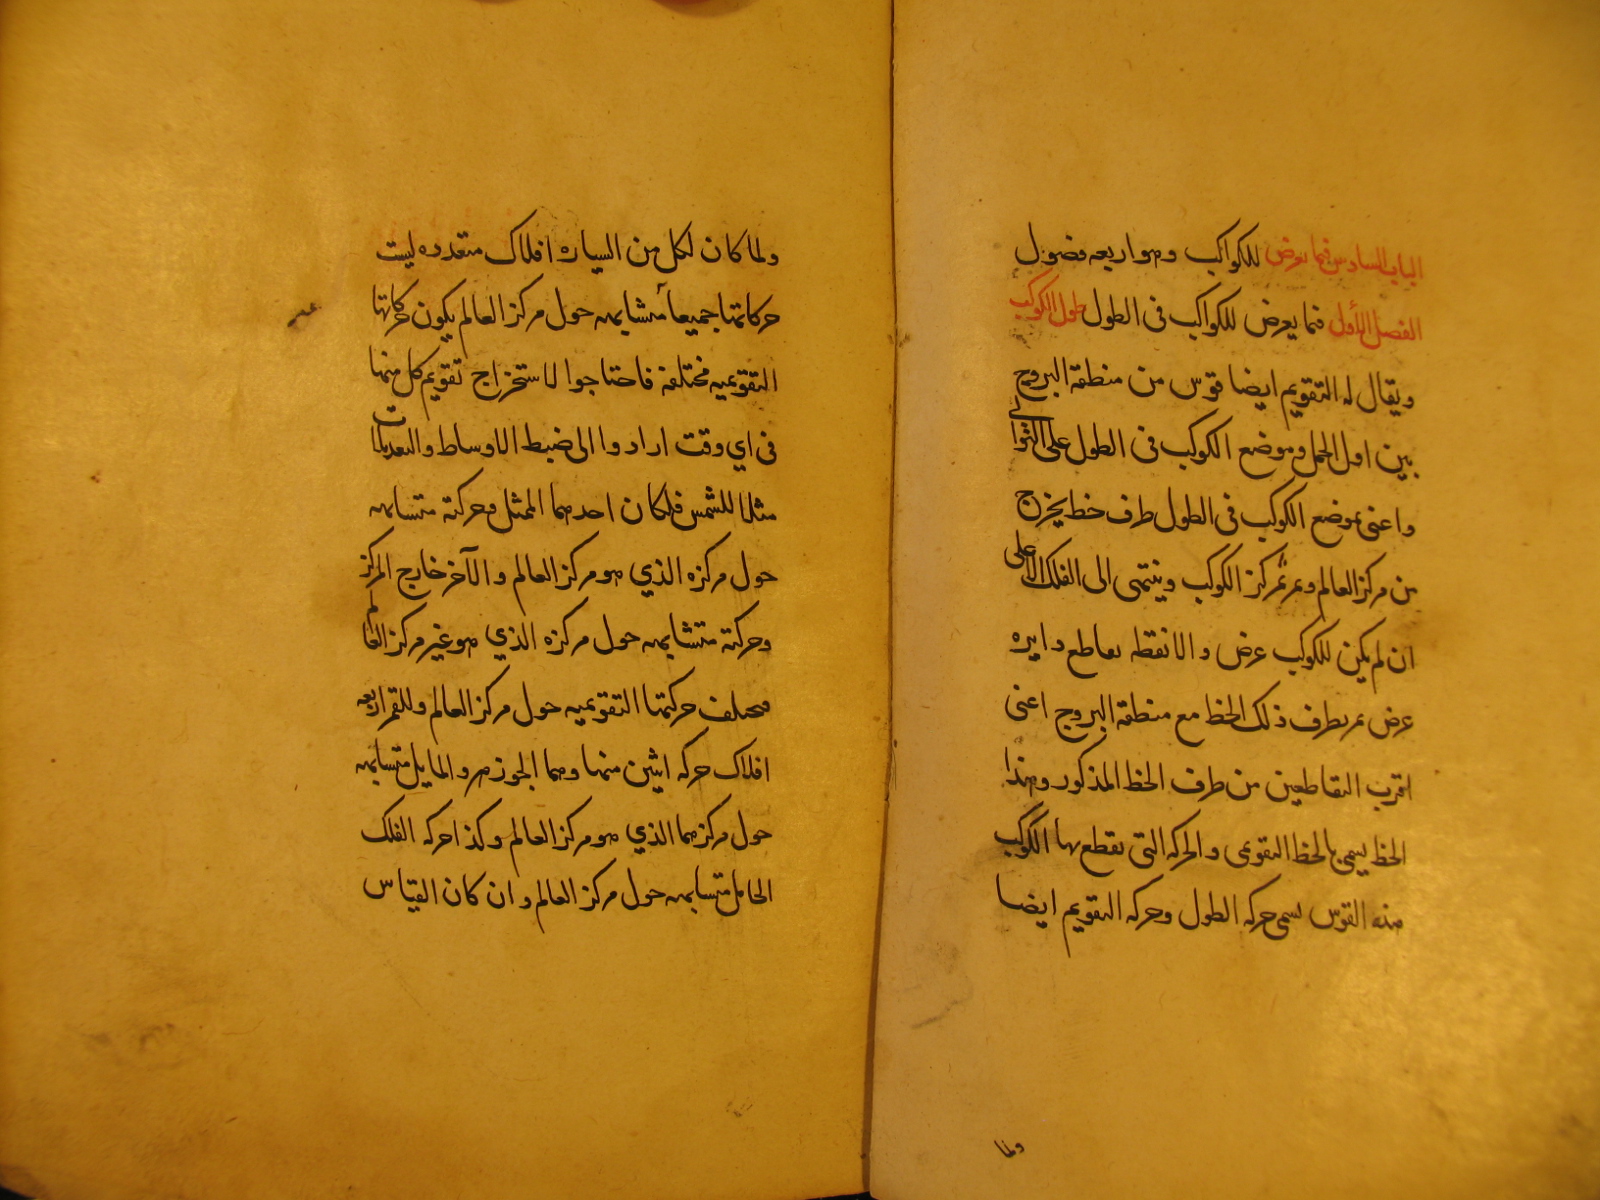 الباب السادس فيما يعرض للكواكب وهو اربعه فصول
الفصل الأول فيما يعرض للكواكب فى الطول طول الكوكب
ويقال له التقويم ايضا قوس من منطقة البروج
بين اول الحمل وموضع الكوكب فى الطول على التوالى
واعنى بموضع الكوكب فى الطول طرف خط يخرج
من مركز العالم ويمر بمركز الكوكب وينتهى الى الفلك الاعلى
ان لم يكن للكوكب عرض والا نقطه تقاطع دايره
عرض تمر بطرف ذلك الخط مع منطقة البروج اعنى
اقرب التقاطعين من طرف الخط المذكور وهذا
الخط يسمى بالخط التقويمى والحركه التى يقطع بها الكوكب
هذه القوس تسمى حركه الطول وحركه التقويم ايضا
ولما
ولما كان لكل من السياره افلاك متعدده ليست
حركاتها جميعاً متشابهه حول مركز العالم يكون حركاتها
التقويميه مختلفة فاحتاجوا لاستخراج تقويم كل منها
فى اي وقت ارادوا الى ضبط الاوساط والتعديلات
مثلا للشمس فلكان احدهما الممثل وحركته متشابهه
حول مركزه الذي هو مركز العالم والآخر خارج المركز
وحركته متشابهه حول مركزه الذي هو غير مركز العالم
فيختلف حركتها التقويميه حول مركز العالم وللقمر اربعه
افلاك حركه اثنين منها وهما الجوزهر والمايل متشابهه
حول مركزهما الذي هو مركز العالم وكذا حركه الفلك
الحامل متشابهه حول مركز العالم وان كان القياس